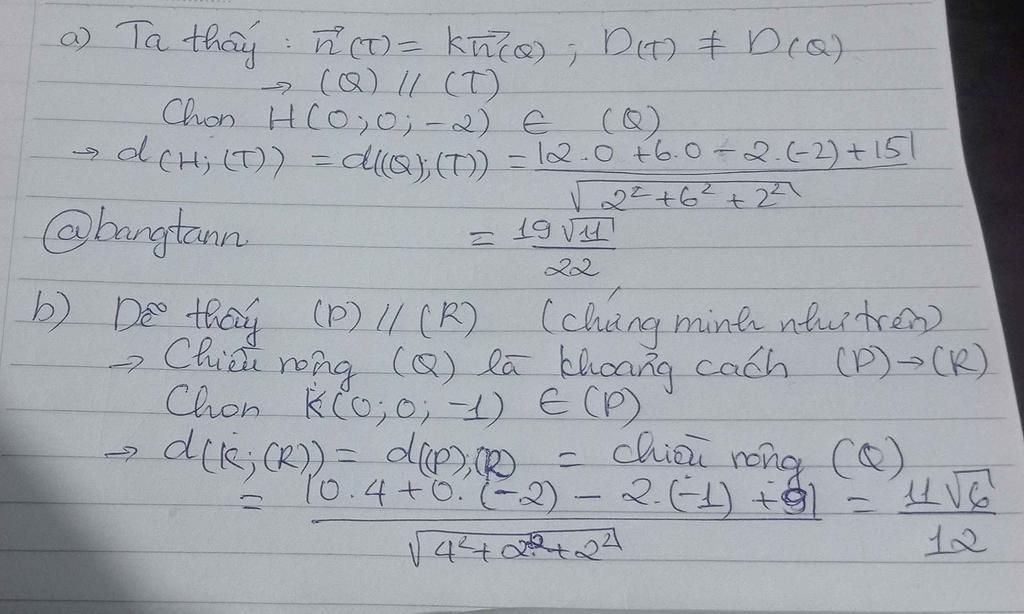 a) Ta thấy : n⃗(T) = kn⃗(Q) ; D(T) ≠ D(Q)
→ (Q) // (T)
Chọn H(0;0;-2) ∈ (Q)
→ d(H;(T)) = d((Q);(T)) = |2.0 + 6.0 - 2.(-2) + 15| / √(2² + 6² + 2²)
@bangtann = 19√11 / 22
b) Dễ thấy (P) // (R) (chứng minh như trên)
→ Chiều rộng (Q) là khoảng cách (P) → (R)
Chọn K(0;0;-1) ∈ (P)
→ d(K;(R)) = d((P);(R) = chiều rộng (Q)
= |0.4 + 0.(-2) - 2.(-1) + 9| / √(4² + 2² + 2²) = 11√6 / 12